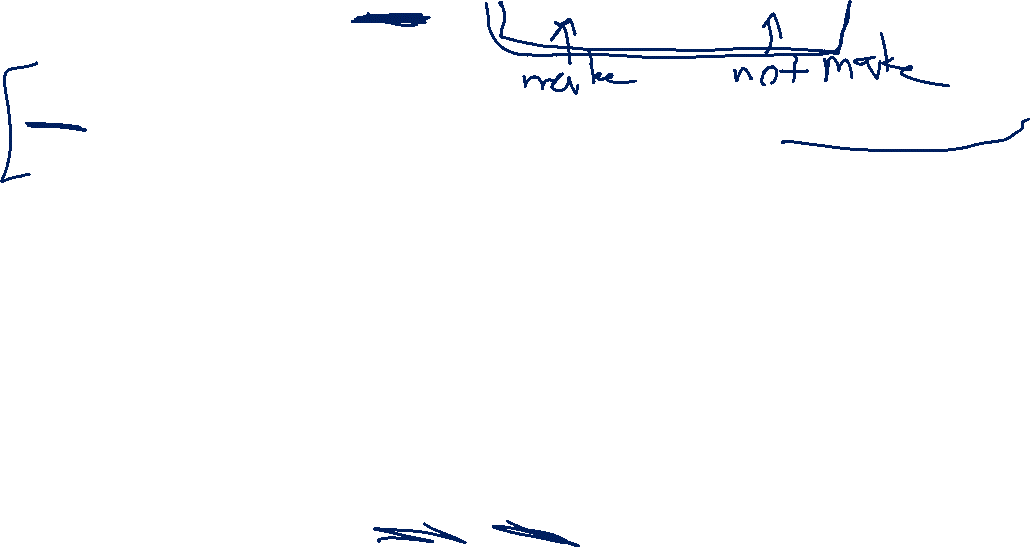 make not make